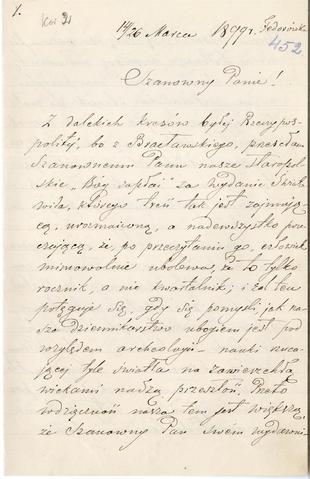 1.
14/26 Marca 1899 r.
452
Szanowny Panie!
Z dalekich kresów byłej Rzeczypos-
politej, bo z Bracławskiego, przesełam
Szanownemu Panu nasze staropol-
skie „Bóg zapłać” za wydanie Świato-
wita, którego treść tak jest zajmują-
cą, urozmaiconą, a nadewszystko pou-
czającą, że, po przeczytaniu go, człowiek
mimowolnie ubolewa, że to tylko
rocznik, a nie kwartalnik; i żal ten
potęguje się, gdy się pomyśli jak na-
sze dziennikarstwo ubogiem jest pod
względem archeologii – nauki rzuca-
jącej tyle światła na zawierzchłą
wiekami naszą przeszłość. Przeto
wdzięczność nasza tem jest większą,
że Szanowny Pan swem wydawni-